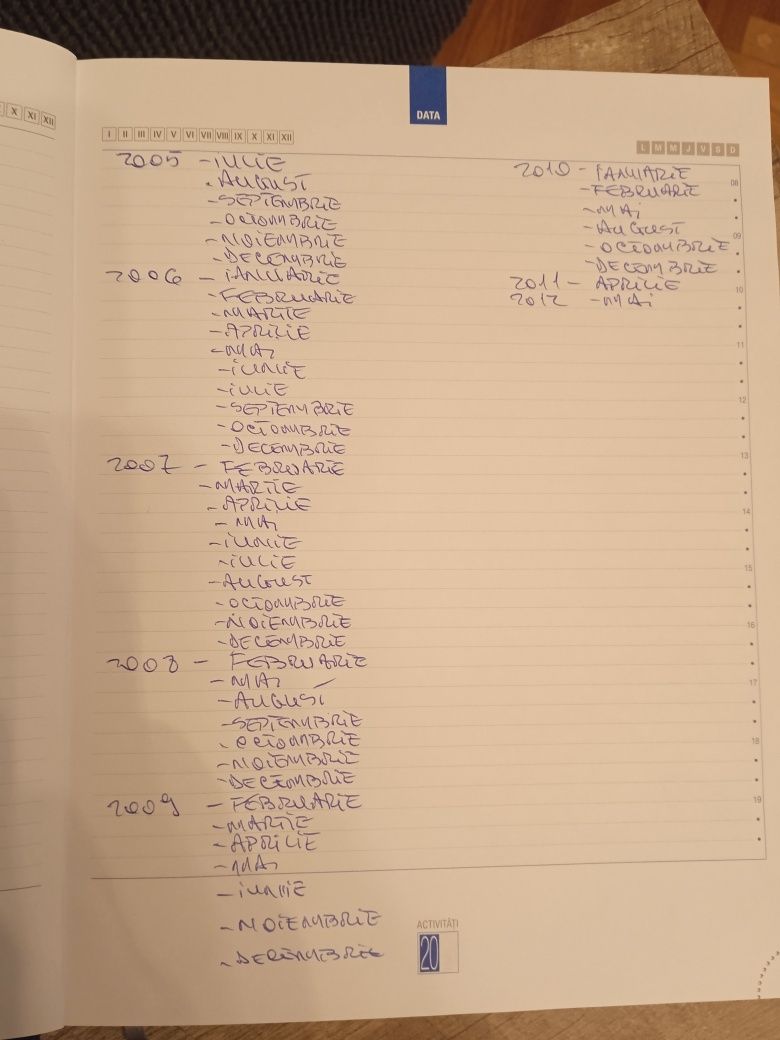 X XI XII
DATA
I II III IV V VI VII VIII IX X XI XII
L M M J V S D
2005 - IULIE
- AUGUST
- SEPTEMBRIE
- OCTOMBRIE
- NOIEMBRIE
- DECEMBRIE
2006 - IANUARIE
- FEBRUARIE
- MARTIE
- APRILIE
- MAI
- IUNIE
- IULIE
- SEPTEMBRIE
- OCTOMBRIE
- DECEMBRIE
2007 - FEBRUARIE
- MARTIE
- APRILIE
- MAI
- IUNIE
- IULIE
- AUGUST
- OCTOMBRIE
- NOIEMBRIE
- DECEMBRIE
2008 - FEBRUARIE
- MAI
- AUGUST
- SEPTEMBRIE
- OCTOMBRIE
- NOIEMBRIE
- DECEMBRIE
2009 - FEBRUARIE
- MARTIE
- APRILIE
- MAI
- IUNIE
- NOIEMBRIE
- DECEMBRIE
2010 - IANUARIE
- FEBRUARIE
- MAI
- AUGUST
- OCTOMBRIE
- DECEMBRIE
2011 - APRILIE
2012 - MAI
08
09
10
11
12
13
14
15
16
17
18
19
ACTIVITĂȚI
20